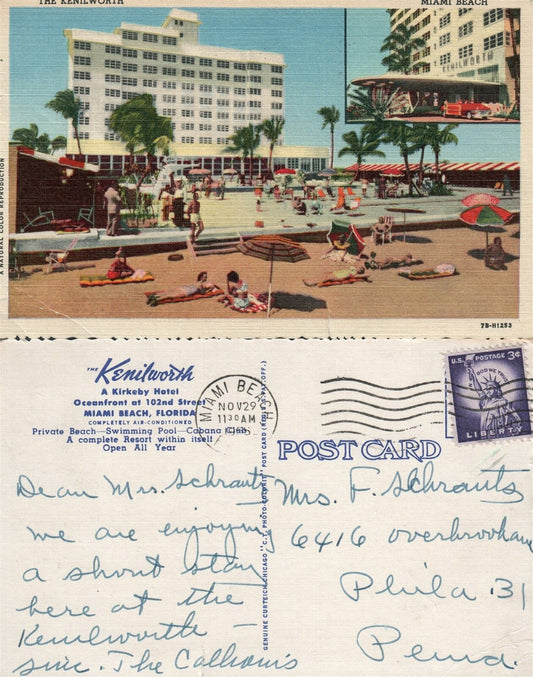 THE KENILWORTH
MIAMI BEACH
KENILWORTH
A NATURAL COLOR REPRODUCTION
7B-H1253
THE Kenilworth
A Kirkeby Hotel
Oceanfront at 102nd Street
MIAMI BEACH, FLORIDA
COMPLETELY AIR-CONDITIONED
Private Beach—Swimming Pool—Cabana Club
A complete Resort within itself
Open All Year
MIAMI BEACH
NOV 29
11 30 AM
U.S. POSTAGE 3¢
IN GOD WE TRUST
LIBERTY
POST CARD
GENUINE CURTEICH-CHICAGO "C.T. PHOTO-COLORIT" POST CARD (REG. U.S. PAT. OFF.)
Dear Mrs. Schrantz
we are enjoying
a short stay
here at the
Kenilworth –
sinc. The Calhouns
Mrs. F. Schrantz
6416 Overbrook
Phila 31
Penna.